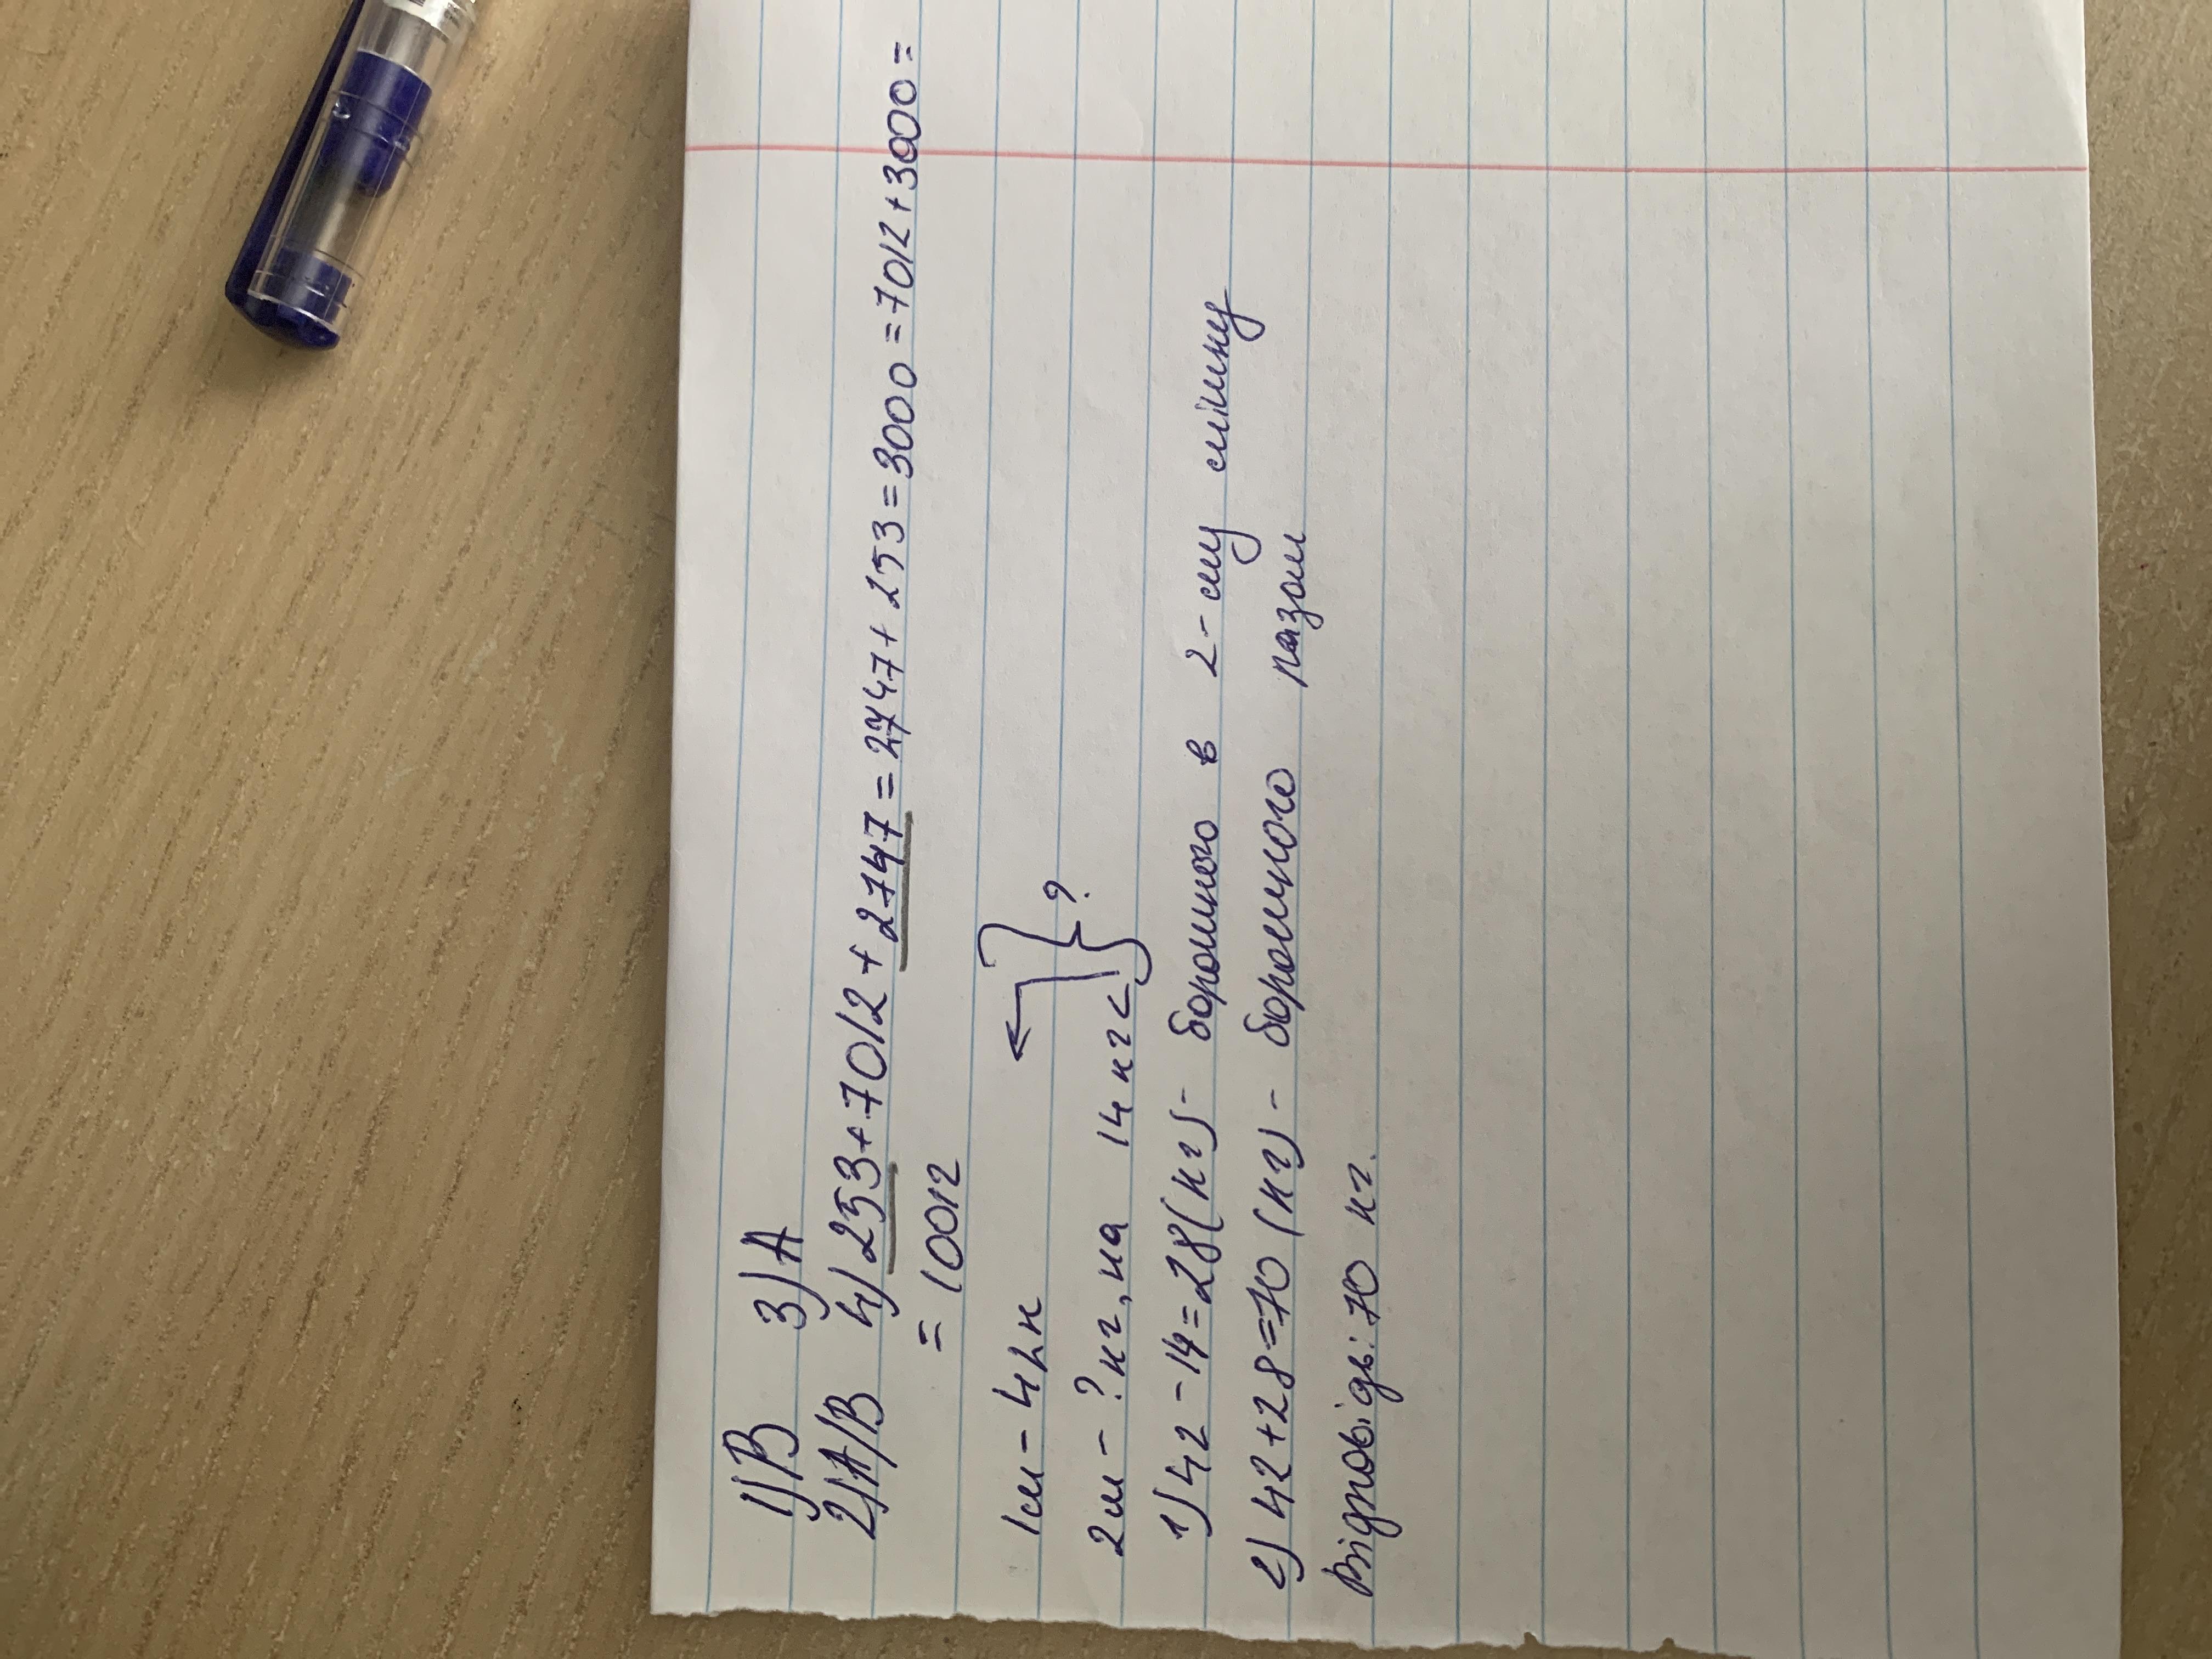 1) В 3) А
2) А/В 4) 253+7012+2747=2747+253=3000=7012+3000=
=10012
1м - 42к
2м - ?кг, на 14 кг< ?
1) 42-14=28(кг)- борошного в 2-му мішку
2) 42+28=70(кг)- борошного разом
Відповідь: 70 кг.